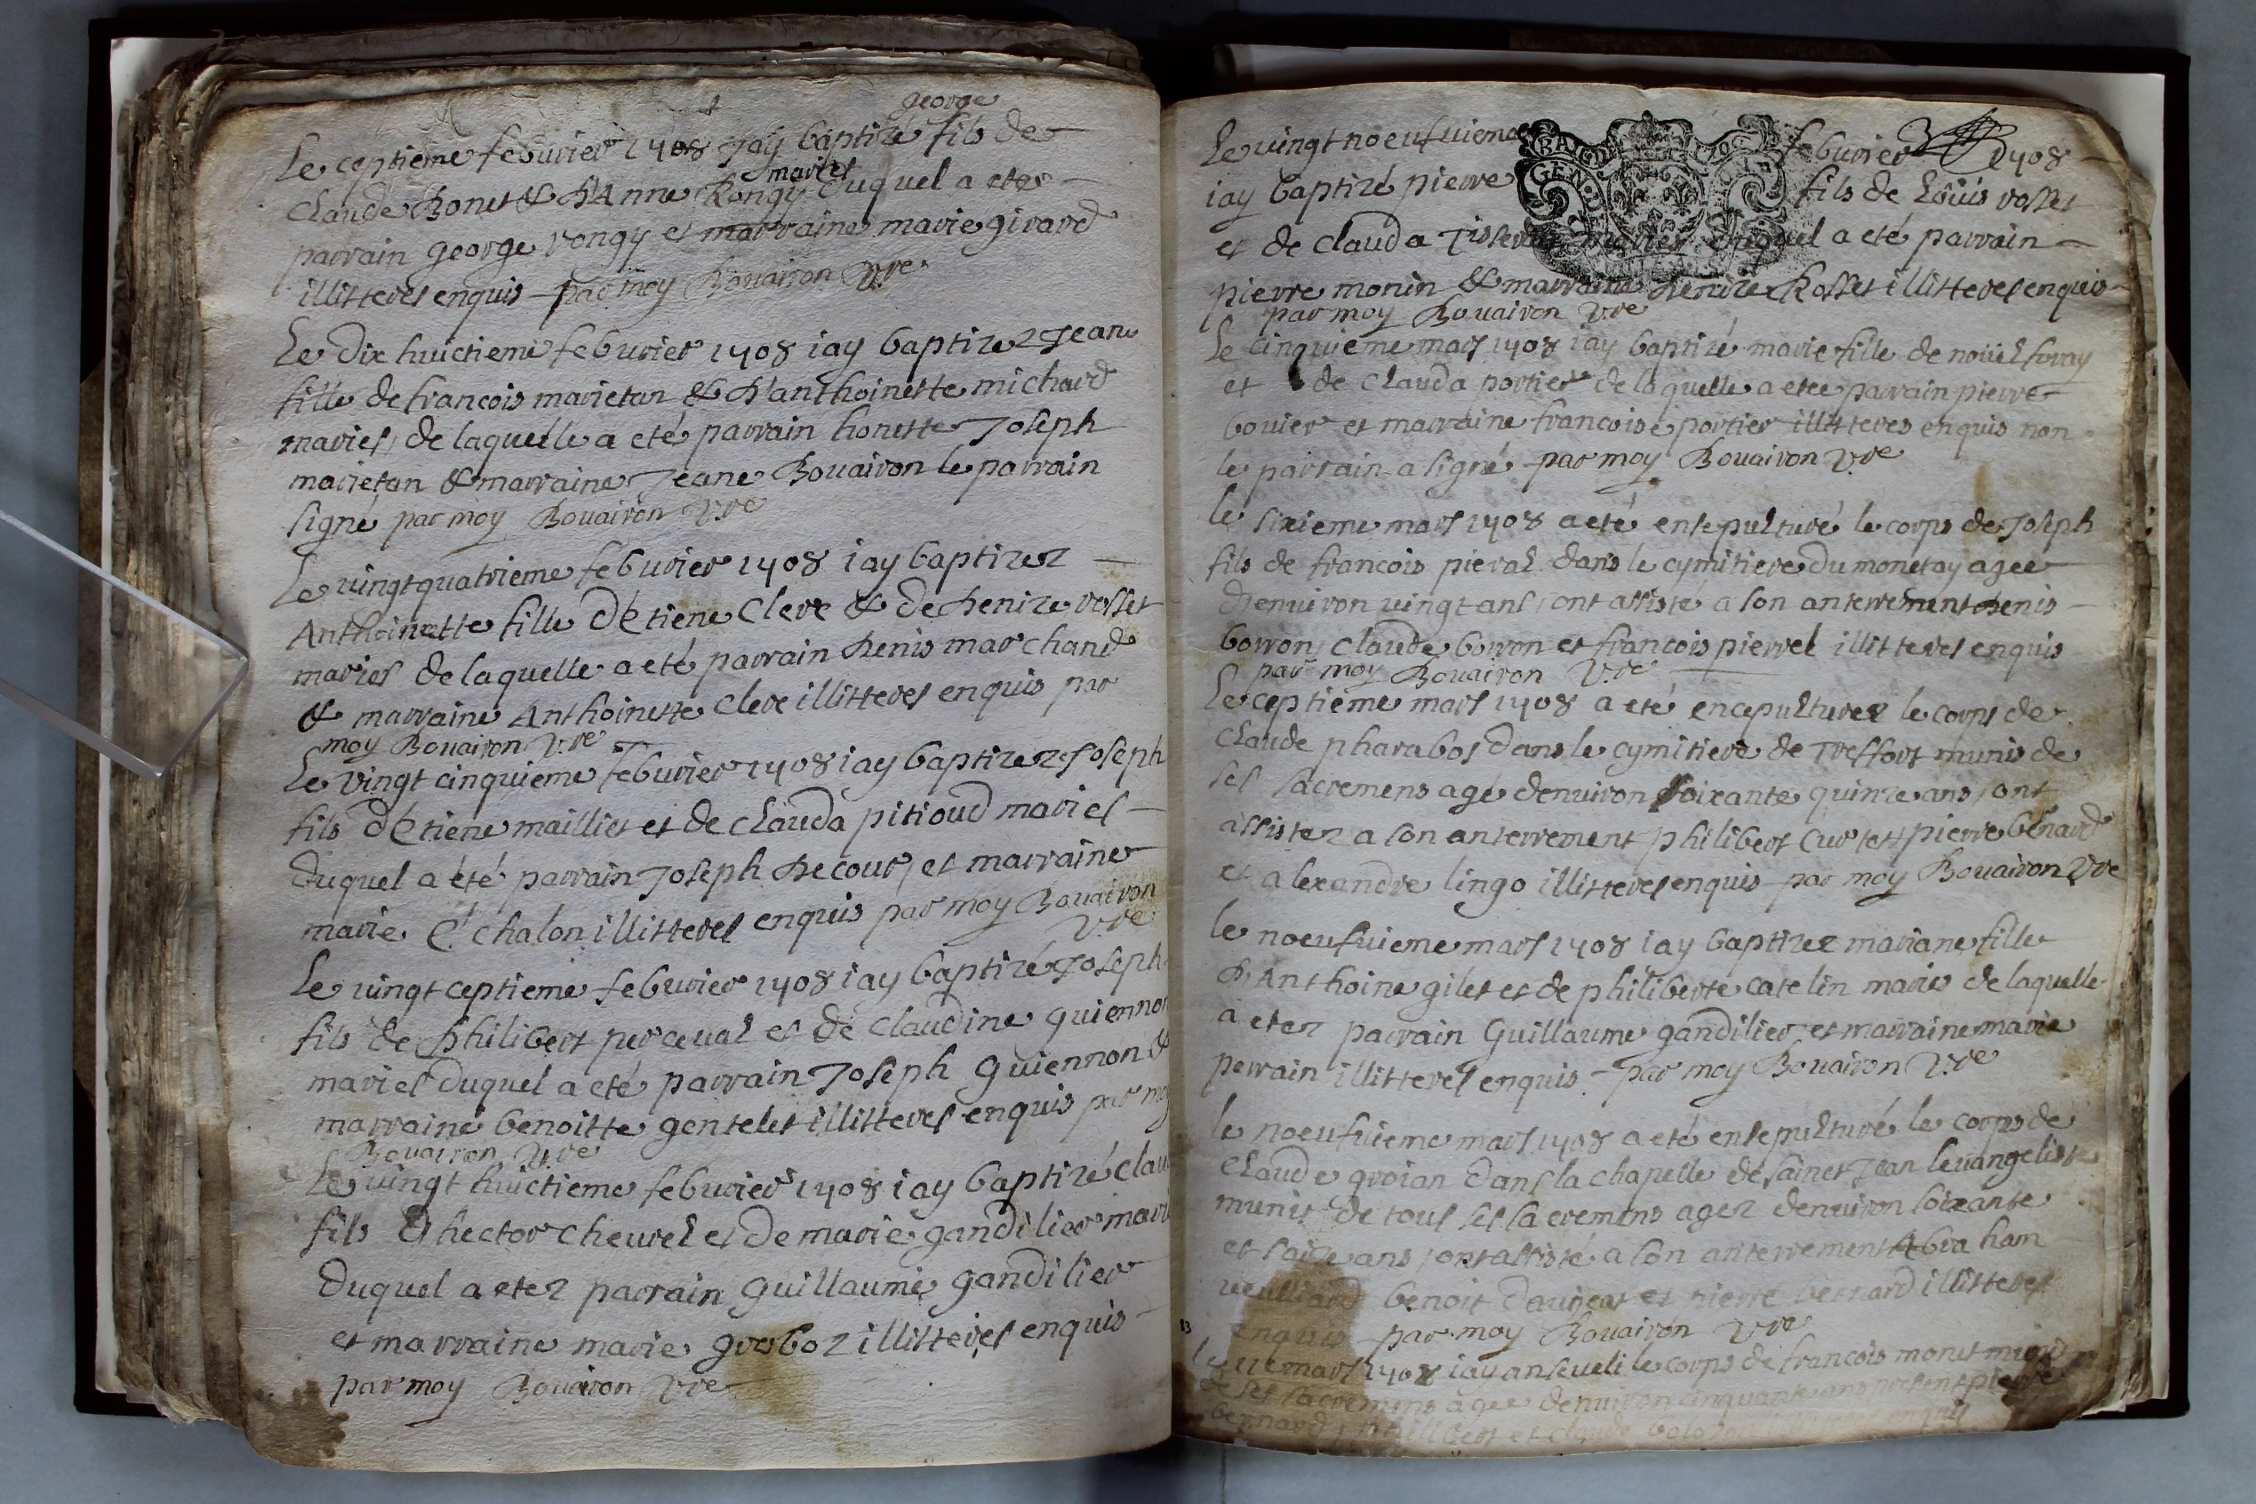 george
Le ceptieme feburier 1708 Jay baptizé fils de
Claude Bonet & D'Anne Rongy mariez duquel a ete
parrain george rongy et marraine marie girard
illitteres enquis par moy Bouairon Vre
Le dix huictieme feburier 1708 iay baptizez Jeane
fille de francois marietan & D'anthoinette michard
maries, de laquelle a eté parrain honette Joseph
marietan & marraine Jeane Bouairon le parrain
signé par moy Bouairon Vre
Le vingt quatrieme feburier 1708 iay baptizez
Anthoinette fille d'Etiene Clere & de Denize rosset
maries de laquelle a eté parrain Denis marchand
& marraine Anthoinette Clere illitteres enquis par
moy Bouairon Vre
Le vingt cinquieme feburier 1708 iay baptizez Joseph
fils d'Etiene maillier et de Clauda pitioud maries
duquel a été parrain Joseph Decour, et marraine
marie Chalon illitteres enquis par moy Bouairon
Vre
Le vingt ceptieme feburier 1708 iay baptizé Joseph
fils de Philibert perceual et de Claudine quiennon
maries duquel a eté parrain Joseph Guiennon &
marraine benoitte gentelet illitteres enquis par moy
Bouairon Vre
Le vingt huictieme feburier 1708 iay baptizé Clau
fils d'hector Cheurel et de marie gandilier mari
duquel a etez parrain guillaume gandilier
et marraine marie grosboz illitteres enquis
par moy Bouairon Vre
Le vingt noeufuieme feburier 1708
GEN
iay baptizé pierre fils de Loüis rosset
et de Clauda Tisserand maries duquel a eté parrain
pierre monin & marraine Denize Rosset illitteres enquis
par moy Bouairon Vre
Le Cinquieme mars 1708 iay baptizé marie fille de noüel foray
et de Clauda portier de laquelle a etee parrain pierre
bouier et marraine francoise portier illitteres enquis non
le parrain a signé par moy Bouairon Vre
le sixieme mars 1708 a eté ensepulturé le corps de Joseph
fils de francois pieral dans le cymitiere du monetay agee
d'enuiron vingt ans, ont assisté a son anterrement Denis
borron, Claude borron et francois pierrel illitteres enquis
par moy Bouairon Vre
Le ceptieme mars 1708 a eté encepulturez le corps de
Claude pharabos dans le cymitiere de Treffort munis de
ses sacremens agé denuiron soixante quinze ans, ont
assistez a son anterrement philibert Curtet, pierre benard
et alexandre lingo illitteres enquis par moy Bouairon Vre
le noeufuieme mars 1708 iay baptizez mariane fille
D'Anthoine gilet et de philiberte catelin maries de laquelle
a etez parrain Guillaume gandilier, et marraine marie
perrain illitteres enquis par moy Bouairon Vre
le noeufuieme mars 1708 a eté ensepulturé le corps de
Claude groian dans la chapelle de sainct Jean leuangeliste
munis de tous ses sacremens agez denuiron soixante
et saize ans, ont assisté a son anterrement Abraham
veulliard benoit et pierre bernard illitteres
enquis par moy Bouairon Vre
mars 1708 iay anseueli le corps de francois monet munis
de ses sacremens agee denuiron cinquante ans pierre
bernard philibert et Claude